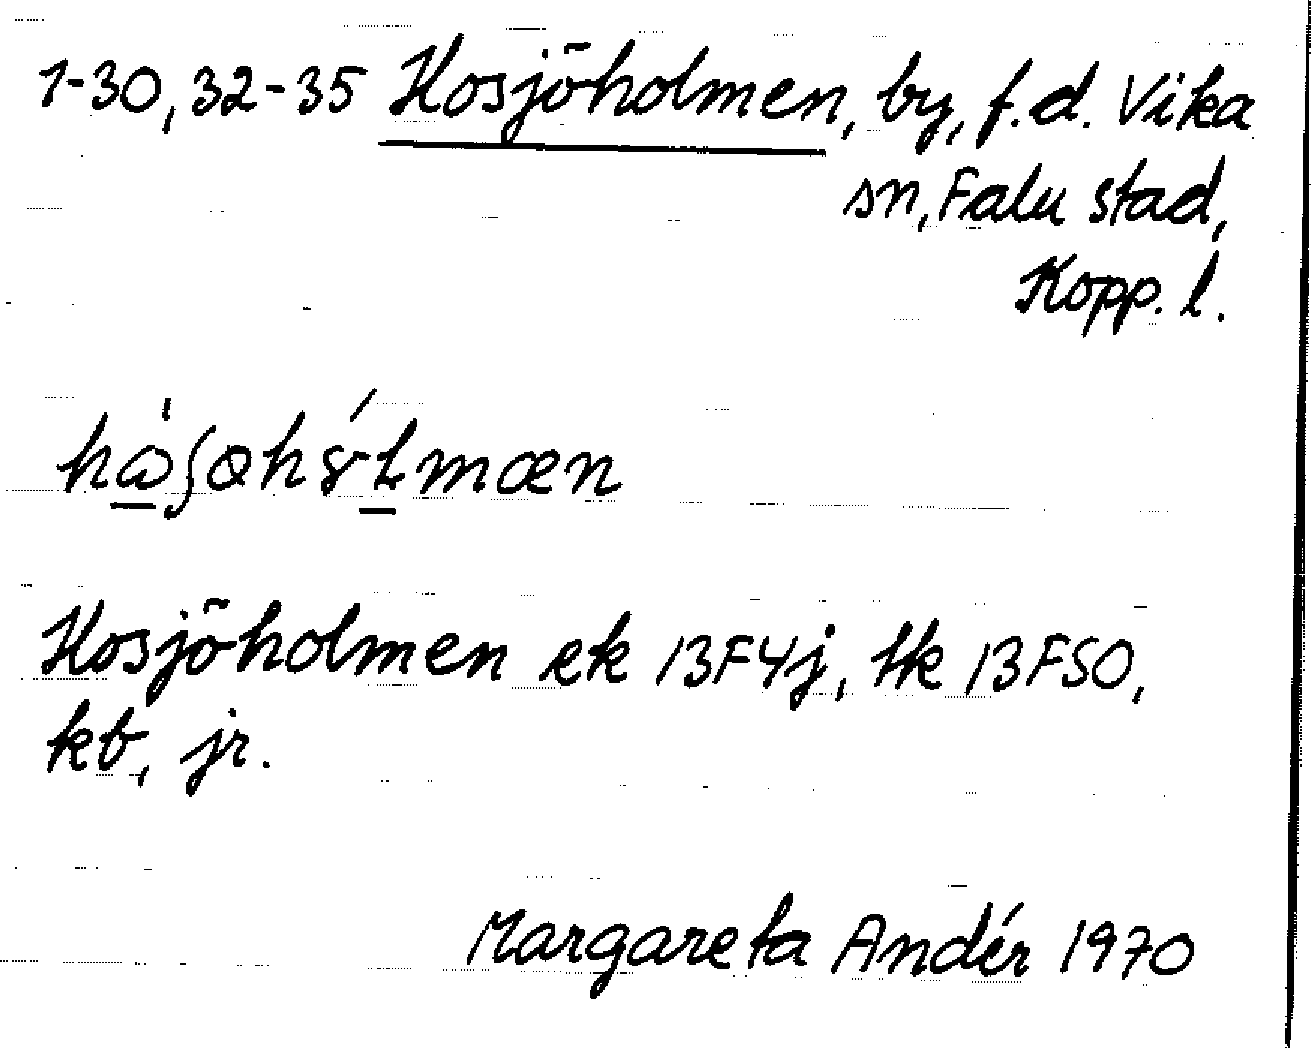 1-30, 32-35 Hosjöholmen, by, f.d. Vika
sn, Falu stad,
Kopp. l.
Hosjöholmen ek 13F4j, tk 13FSO,
kb, jr.
Margareta Andér 1970